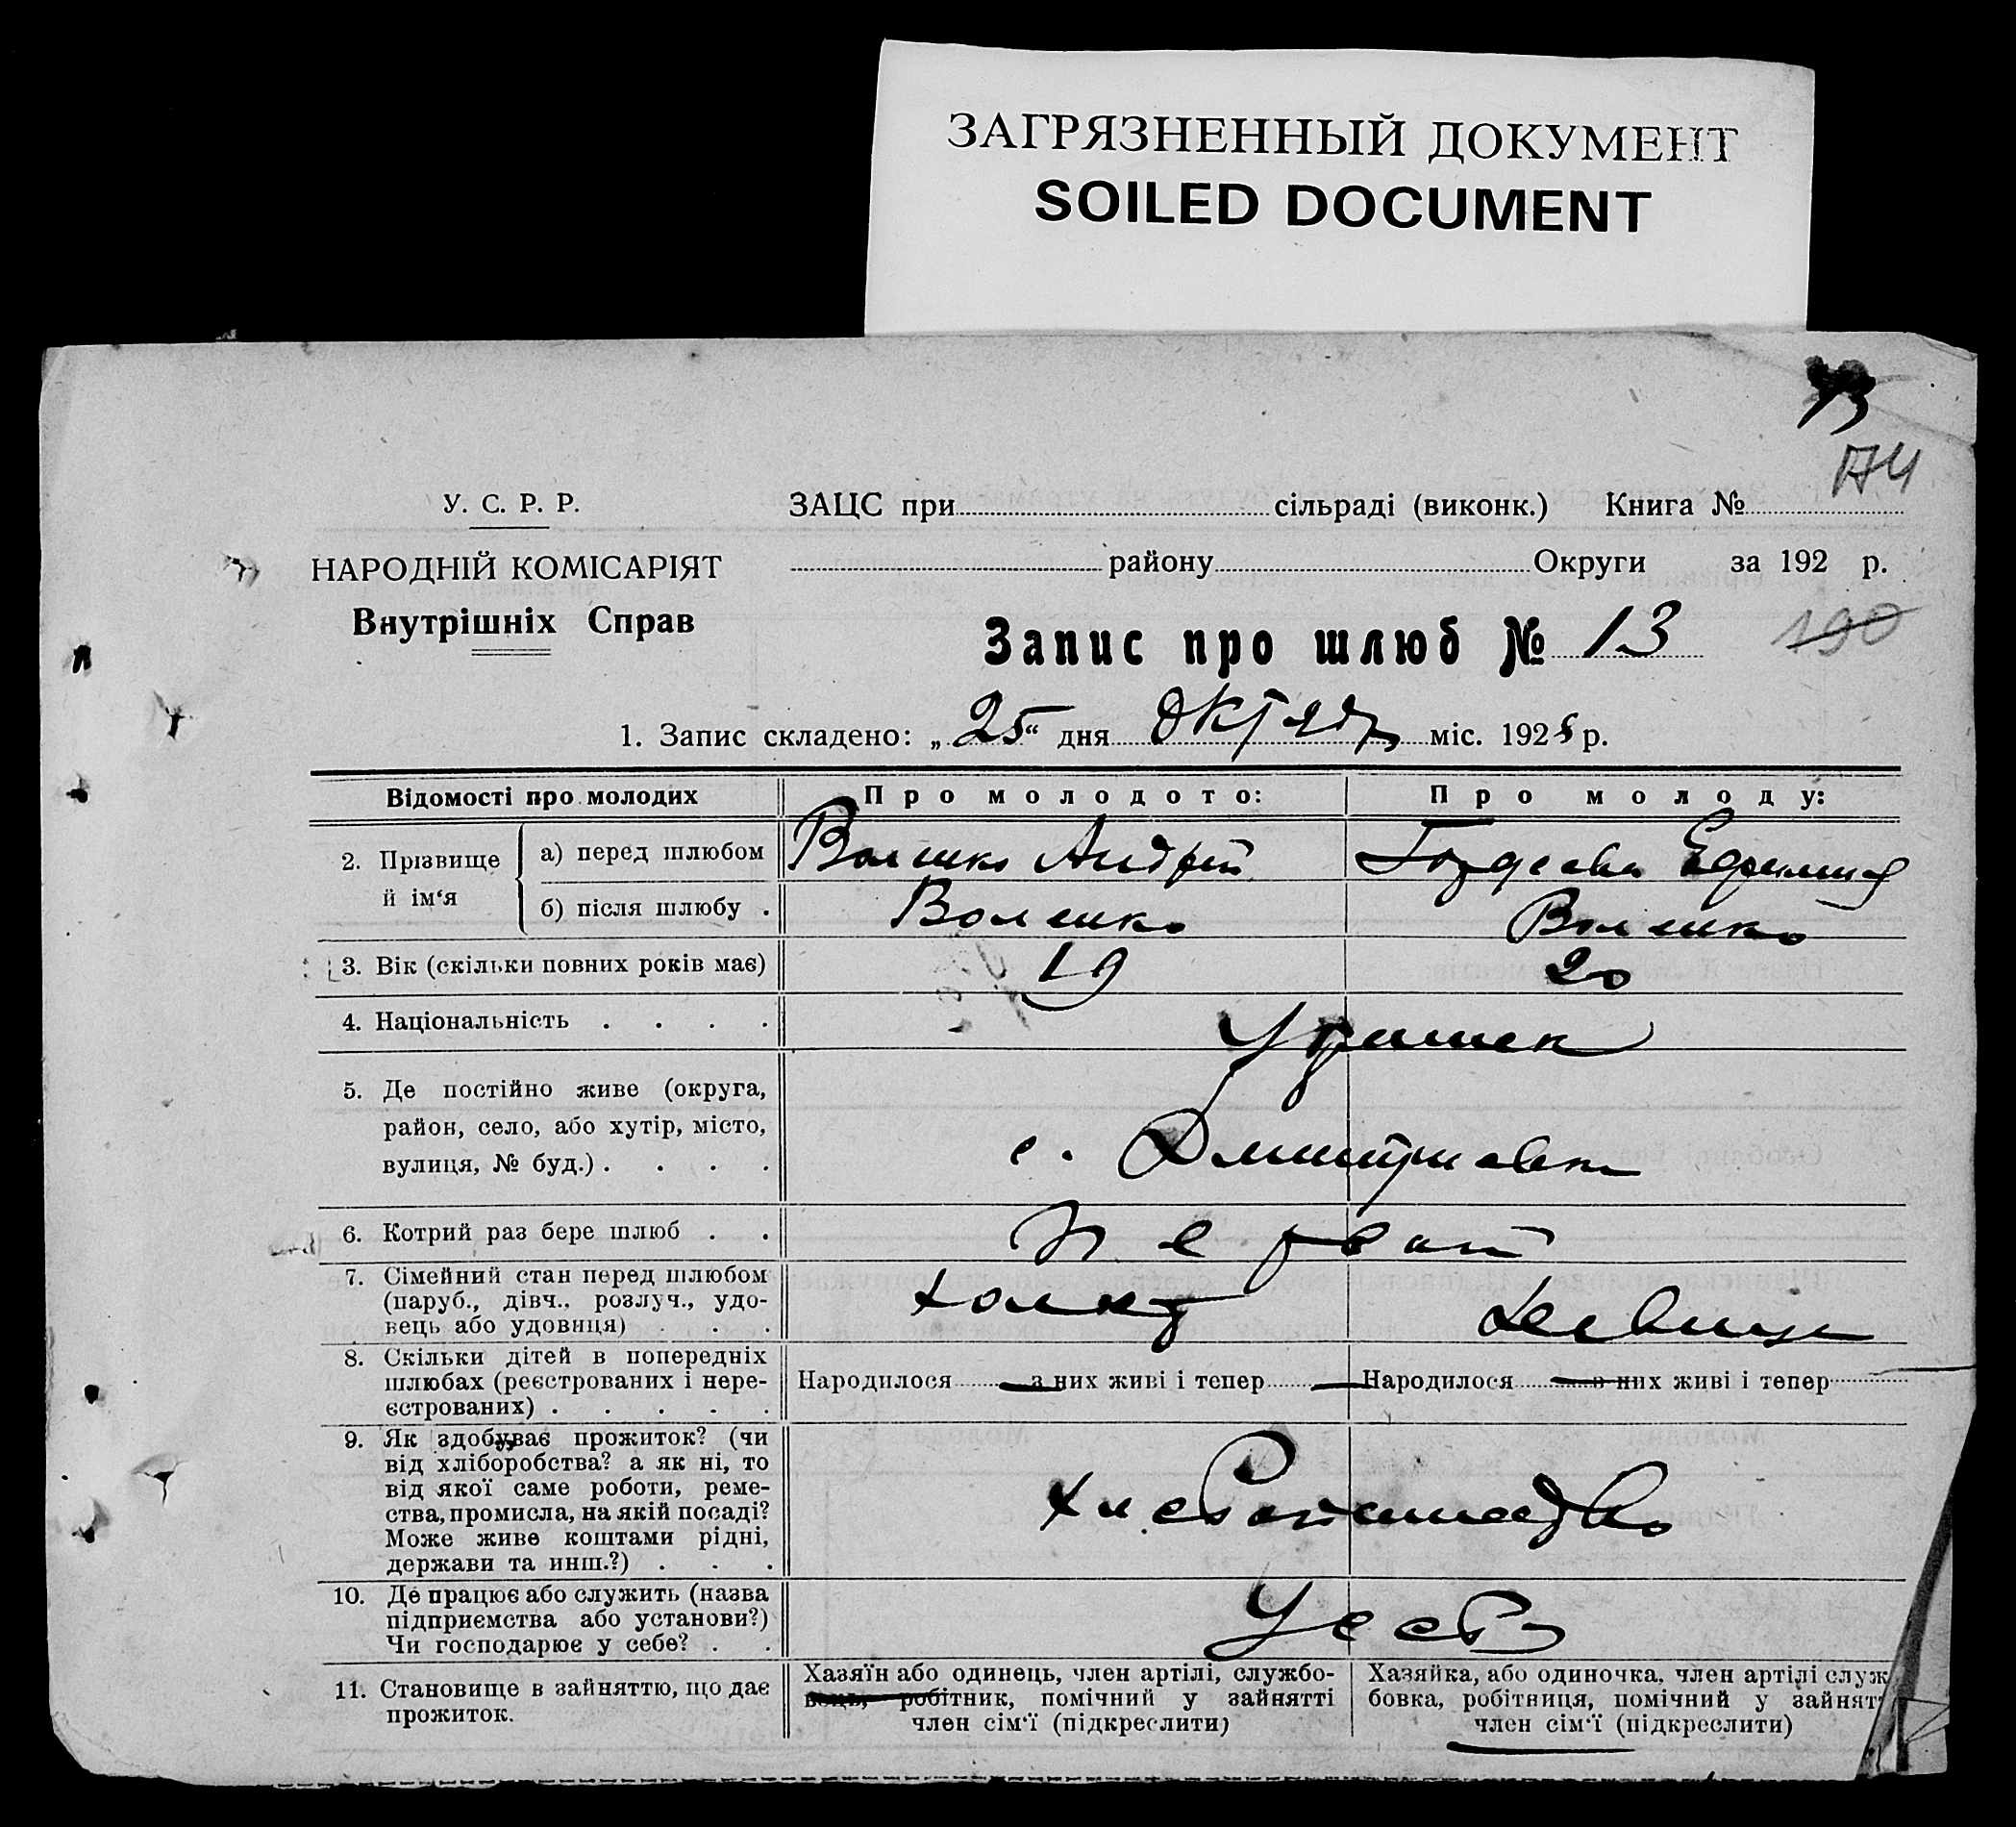 ЗАГРЯЗНЕННЫЙ ДОКУМЕНТ
SOILED DOCUMENT
174
У. С. Р. Р.
НАРОДНІЙ КОМІСАРІЯТ
Внутрішніх Справ
ЗАЦС при сільраді (виконк.) Книга №
району Округи за 192 р.
Запис про шлюб № 13 190
1. Запис складено: „25“ дня міс. 192 р.
Відомості про молодих Про молодого: Про молоду:
2. Прізвище й ім‘я
а) перед шлюбом Волошко Андрей
б) після шлюбу . Волошко Волошко
3. Вік (скільки повних років має) 19 20
4. Національність . . . .
5. Де постійно живе (округа,
район, село, або хутір, місто,
вулиця, № буд.) . . . .
с. Дмитриевка
6. Котрий раз бере шлюб . . первый
7. Сімейний стан перед шлюбом
(паруб., дівч., розлуч., удо-
вець або удовиця) . . .
холост девица
8. Скільки дітей в попередніх
шлюбах (реєстрованих і нере-
єстрованих) . . . . .
Народилося з них живі і тепер Народилося з них живі і тепер
9. Як здобуває прожиток? (чи
від хліборобства? а як ні, то
від якої саме роботи, реме-
ства, промисла, на якій посаді?
Може живе коштами рідні,
держави та инш.?) . . .
хлебопашество
10. Де працює або служить (назва
підприємства або установи?)
Чи господарює у себе? . .
11. Становище в зайняттю, що дає
прожиток.
Хазяїн або одинець, член артілі, службо-
вець, робітник, помічний у зайнятті
член сім‘ї (підкреслити)
Хазяйка, або одиночка, член артілі служ
бовка, робітниця, помічний у зайнят
член сім‘ї (підкреслити)